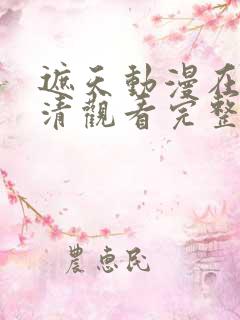 遮天動漫在
清觀看完整
農惠民